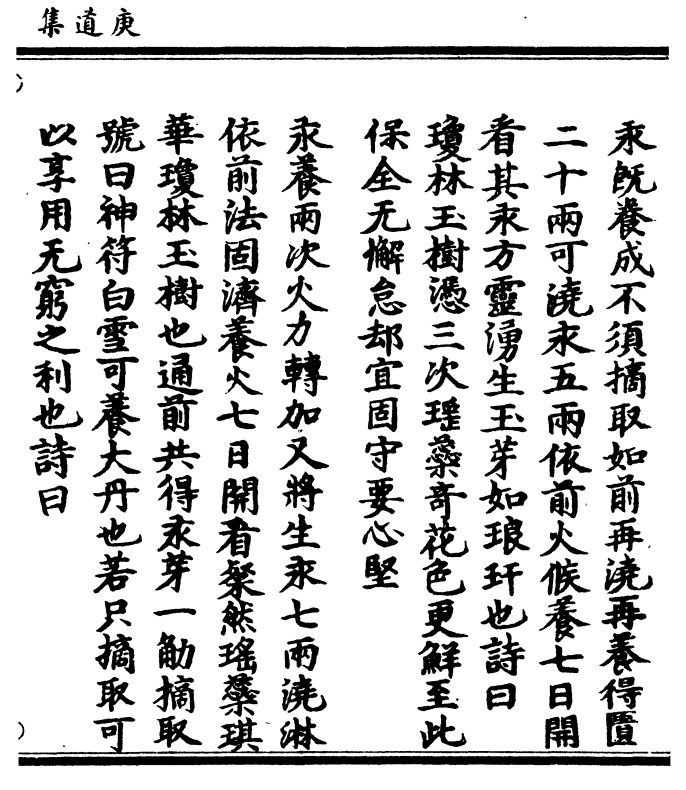 庚道集
汞既養成不須摘取如前再澆再養得匱
二十兩可澆汞五兩依前火候養七日開
看其汞方靈湧生玉芽如琅玕也詩曰
瓊林玉樹憑三次瑤蘂奇花色更鮮至此
保全无懈怠却宜固守要心堅
汞養兩次火力轉加又將生汞七兩澆淋
依前法固濟養火七日開看粲然瑤蘂琪
華瓊林玉樹也通前共得汞芽一觔摘取
號曰神符白雪可養大丹也若只摘取可
以享用无窮之利也詩曰